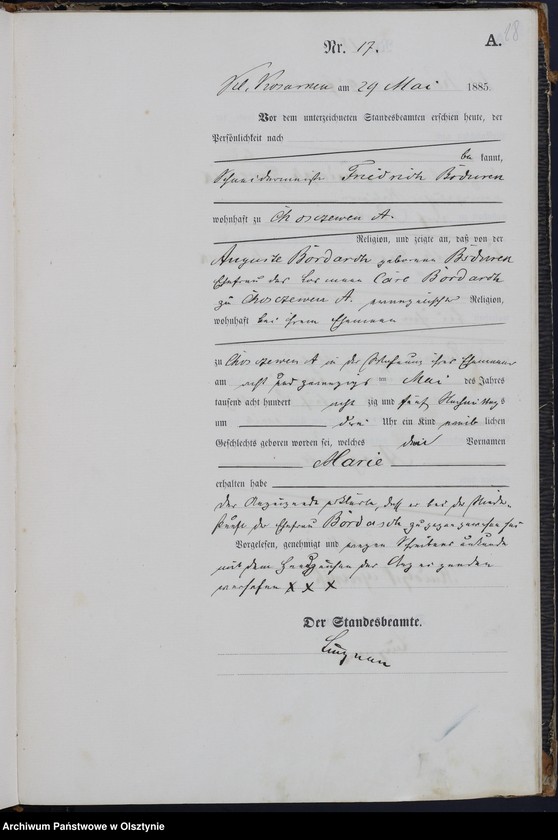 28
Nr. 17. A.
Kl. Kosarken am 29 Mai 1885.
Vor dem unterzeichneten Standesbeamten erschien heute, der
Persönlichkeit nach
be kannt,
Schneidermeister Friedrich Böduren
wohnhaft zu Choszewen A.
Religion, und zeigte an, daß von der
Auguste Bordasch geborenen Böduren
Ehefrau des Losmann Carl Bordasch
zu Choszewen A. evangelischer Religion,
wohnhaft bei ihrem Ehemann
zu Choszewen A in der Wohnung ihres Ehemannes
am acht und zwanzigs ten Mai des Jahres
tausend acht hundert acht zig und fünf Nachmittags
um drei Uhr ein Kind weib lichen
Geschlechts geboren worden sei, welches den Vornamen
Marie
erhalten habe
Der Anzeigende erklärte, daß er bei der Nieder-
kunft der Ehefrau Bordasch zugegen gewesen sei
Vorgelesen, genehmigt und wegen Schreibens unkunde
mit dem Handzeichen des Anzeigenden
versehen X X X
Der Standesbeamte.
Archiwum Państwowe w Olsztynie